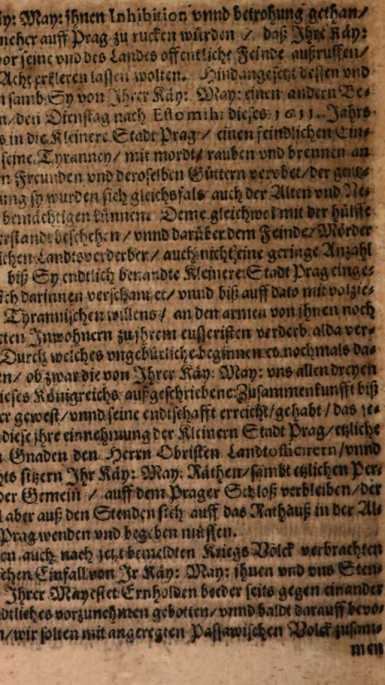 äy: May: jhnen Inhibition vnnd betrohung gethan/
ncher auff Prag zu rucken würden / daß Ihre Käy:
vor seine vnd des Landes offentliche Feinde außruffen/
Acht erkleren lassen wolten. Hindangesetzt dessen vnd
n samb Sy von Ihrer Käy: May: einen andern Be-
n/den Dienstag nach Estomihi dieses 1611. Jahrs
s in die Kleinere Stadt Prag/ einen feindlichen Ein-
seine Tyranney/ mit mordt/ rauben vnd brennen an
n Freunden vnd deroselben Güttern verübet/ der gentz-
ung sy wurden sich gleichsfals auch der Alten vnd Ne-
bemächtigen künnen. Deme gleichwol mit der hülffe
erstandt beschehen/ vnnd darüber dem Feinde/Mörder
ichen Landtsverderber/ auch nicht eine geringe Anzahl
biß Sy endtlich benandte Kleinere Stadt Prag einge-
sich darinnen verschantzet/ vnnd biß auff dato mit volzie-
Tyrannischen willens/ an den armen von jhnen noch
ten Inwohnern zu jhrem eusseristen verderb alda ver-
Durch welches vngebürliche beginnen es nochmals da-
en/ ob zwar die von Ihrer Käy: May: vns allen dreyen
ieses Königreichs außgeschriebene Zusammenkunfft biß
er gewest/ vnnd seine endtschafft erreicht/gehabt/ das je-
diese jhre einnehmung der Kleinern Stadt Prag/ etzliche
n Gnaden den Herrn Obristen Landtofficirern/ vnnd
hts sitzern Ihr Käy: May: Räthen/ sambt etzlichen Per-
der Gemein / auff dem Prager Schloß verbleiben/ der
l aber auß den Stenden sich auff das Rathauß in der Al-
Prag wenden vnd begeben müssen.
en auch nach jetzt bemeldten Kriegs Volck verbrachten
schen Einfall von Ir Käy: May: jhnen vnd vns Sten-
Ihrer Mayestet Ernholden beeder seits gegen einander
dtliches vorzunehmen gebotten/ vnnd baldt darauff bevo-
n/ wir solten mit angeregten Passawischen Volck zusam-
men